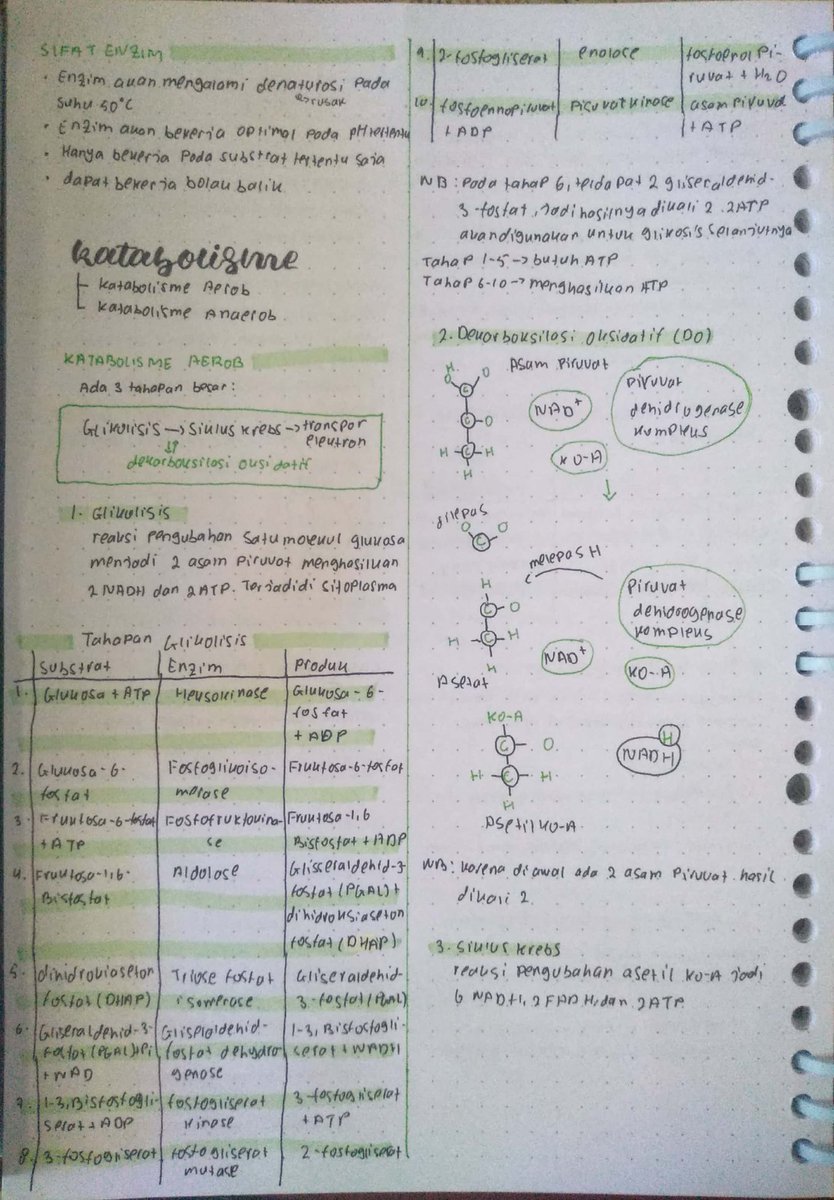 SIFAT ENZIM
• Enzim akan mengalami denaturasi pada
↳rusak
suhu 50°C
• Enzim akan bekerja optimal pada pH tertentu
• Hanya bekerja pada substrat tertentu saja
• dapat bekerja bolak balik
katabolisme
katabolisme Aerob
katabolisme Anaerob
KATABOLISME AEROB
Ada 3 tahapan besar:
Glikolisis → siklus krebs → transpor
elektron
dekarboksilasi oksidatif
1. Glikolisis
reaksi pengubahan satu molekul glukosa
menjadi 2 asam piruvat menghasilkan
2 NADH dan 2 ATP. Terjadi di sitoplasma
Tahapan Glikolisis
Substrat Enzim Produk
1. Glukosa + ATP Heksokinase Glukosa-6-
fosfat
+ ADP
2. Glukosa-6- Fosfoglukoiso- Fruktosa-6-fosfat
fosfat merase
3. Fruktosa-6-fosfat Fosfofruktokina- Fruktosa-1,6
+ ATP se Bisfosfat + ADP
4. Fruktosa-1,6- Aldolase Glisseraldehid-3
Bisfosfat fosfat (PGAL) +
dihidroksiaseton
fosfat (DHAP)
5. dihidroksiaseton Triose fosfat Gliseraldehid-
fosfat (DHAP) isomerase 3-fosfat (PGAL)
6. Gliseraldehid-3- Gliseraldehid- 1-3, Bisfosfogli-
fosfat (PGAL) + Pi fosfat dehydro serat + NADH
+ NAD genase
7. 1-3, Bisfosfogli- fosfogliserat 3-fosfogliserat
serat + ADP kinase + ATP
8. 3-fosfogliserat fosfogliserat 2-fosfogliserat
mutase
9. 2-fosfogliserat enolase fosfoenol pi-
ruvat + H2O
10. fosfoennopiruvat piruvat kinase asam piruvat
+ ADP + ATP
NB : Pada tahap 6, terdapat 2 gliseraldehid-
3-fosfat, jadi hasilnya dikali 2. 2 ATP
akan digunakan untuk glikosis selanjutnya
Tahap 1-5 → butuh ATP
Tahap 6-10 → menghasilkan ATP
2. Dekarboksilasi Oksidatif (DO)
Asam Piruvat
H
O O
C
C O
H C H
H
NAD+
KO-A
Piruvat
dehidrogenase
kompleks
dilepas
O O
C
melepas H
H
C O
H C H
H
Asetat
NAD+
Piruvat
dehidrogenase
kompleks
KO-A
KO-A
C O
H C H
H
Asetil KO-A
H
NADH
NB: karena di awal ada 2 asam piruvat hasil
dikali 2.
3. Siklus krebs
reaksi pengubahan asetil KO-A jadi
6 NADH, 2 FADH, dan 2 ATP